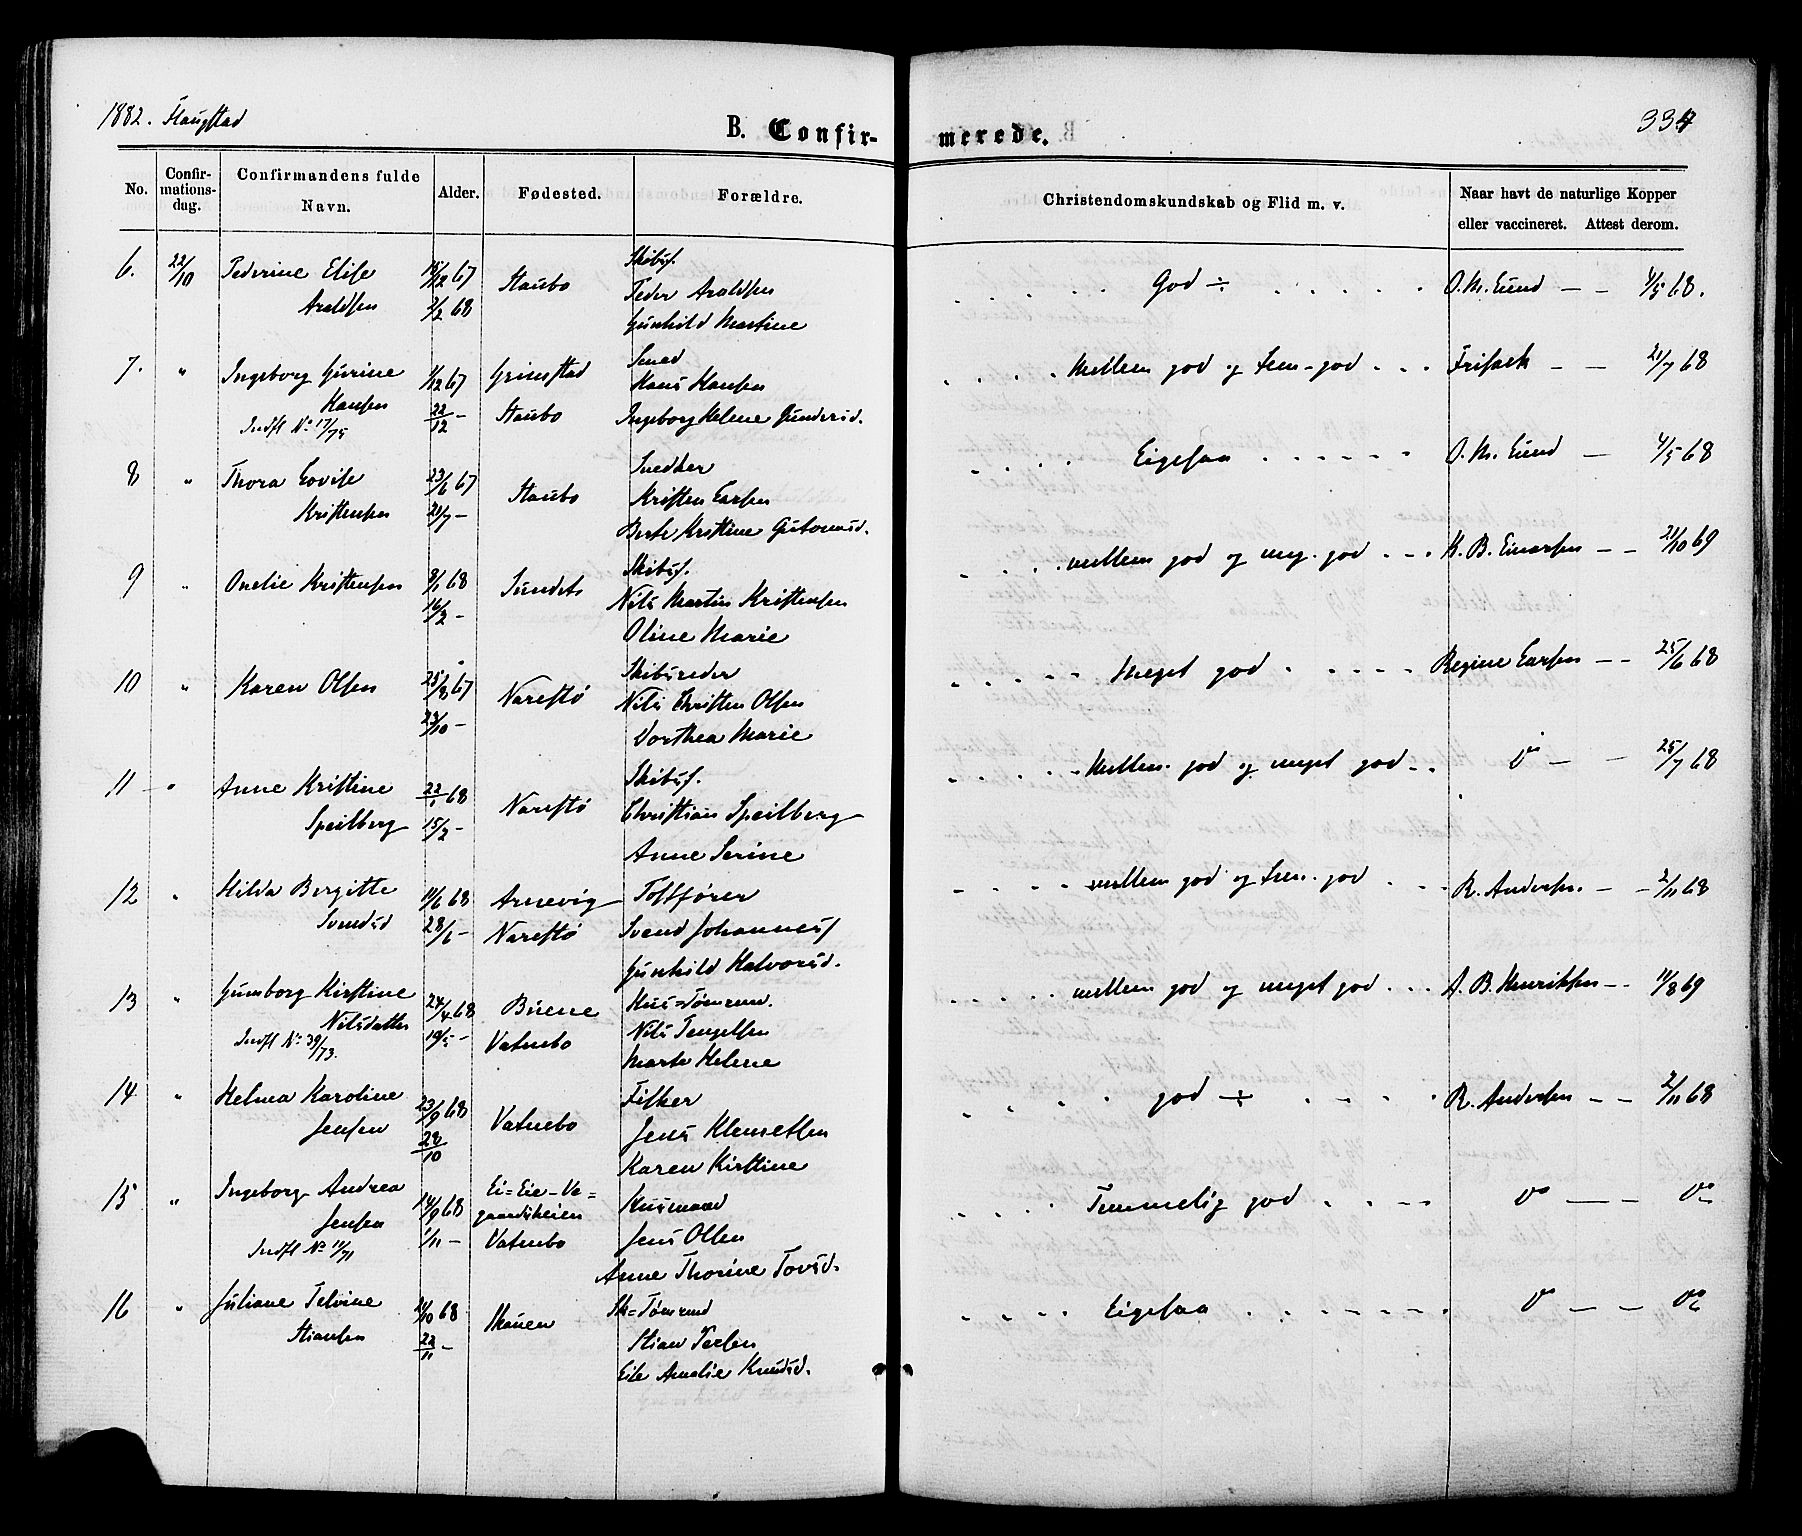 1882. Flangstad
B. Confir-
merede.
334
No.
Confir-
mations-
dag.
Confirmandens fulde
Navn.
Alder.
Fødested.
Forældre.
Christendomskundskab og Flid m. v.
Naar havt de naturlige Kopper
eller vaccineret. Attest derom.
6. 22/10 Pederine Elise 15/12 67 Staubo Skibsf. God ÷ O. M. Lund — — 4/5 68.
Araldsen 2/2 68 Peder Araldsen
Gunhild Martine
7. " Ingeborg Gurine 1/12 67 Grimstad Smed Mellem god og tem. god Frisak — — 21/7 68
Hansen 22/12 — Staubo Hans Hansen
Indfl No 17/75 Ingeborg Helene Gundersd.
8 " Thora Lovise 23/6 67 Staubo Snedker Ligesaa O. M. Lund — 4/5 68
Kristensen 21/7 — Kristen Larsen
Berte Kristine Guttormsd.
9 " Onelie Kristensen 8/1 68 Sundet Skibsf. mellem god og meg. god K. B. Einarsen — — 21/10 69
16/2 — Nils Martin Kristensen
Oline Marie
10 " Karen Olsen 25/8 67 Narestø Skibsreder Meget god Regine Larsen — — 25/6 68
23/10 — Nils Christen Olsen
Dorthea Marie
11 " Anne Kristine 22/1 68 Narestø Skibsf. Mellem god og meget god Do — — 25/7 68
Speilberg 15/2 — Christian Speilberg
Anne Serine
12 " Hilda Bergitte 11/6 68 Arnevig Toltfører mellem god og tem. god R. Andersen — 2/11 68
Svendsd 28/6 — Narestø Svend Johannesf
Gunhild Halvorsd.
13 " Gumborg Kirstine 24/4 68 Buene Hus=Tømrmd. mellem god og meget god A. B. Henriksen — 11/8 69
Nilsdatter 19/5 — Vatnebo Nils Tengelsen
Indfl No 39/73. Marte Helene
14 " Helma Karoline 23/9 68 Vatnebo Fisker god ÷ R. Andersen — — 2/11 68
Jensen 28/10 Jens Klemetsen
Karen Kirstine
15 " Ingeborg Andrea 14/9 68 Husmand Temmelig god Do — — Do
Jensen 1/11 — Vatnebo Jens Olsen
Indfl No 11/71 Anne Thorine Tovsd.
16 " Juliane Telvine 21/10 68 Skauen Sk=Tømrmd Ligesaa Do — — Do
Stiansen 22/11 — Stian Terjsen
Amalie Knudsd.